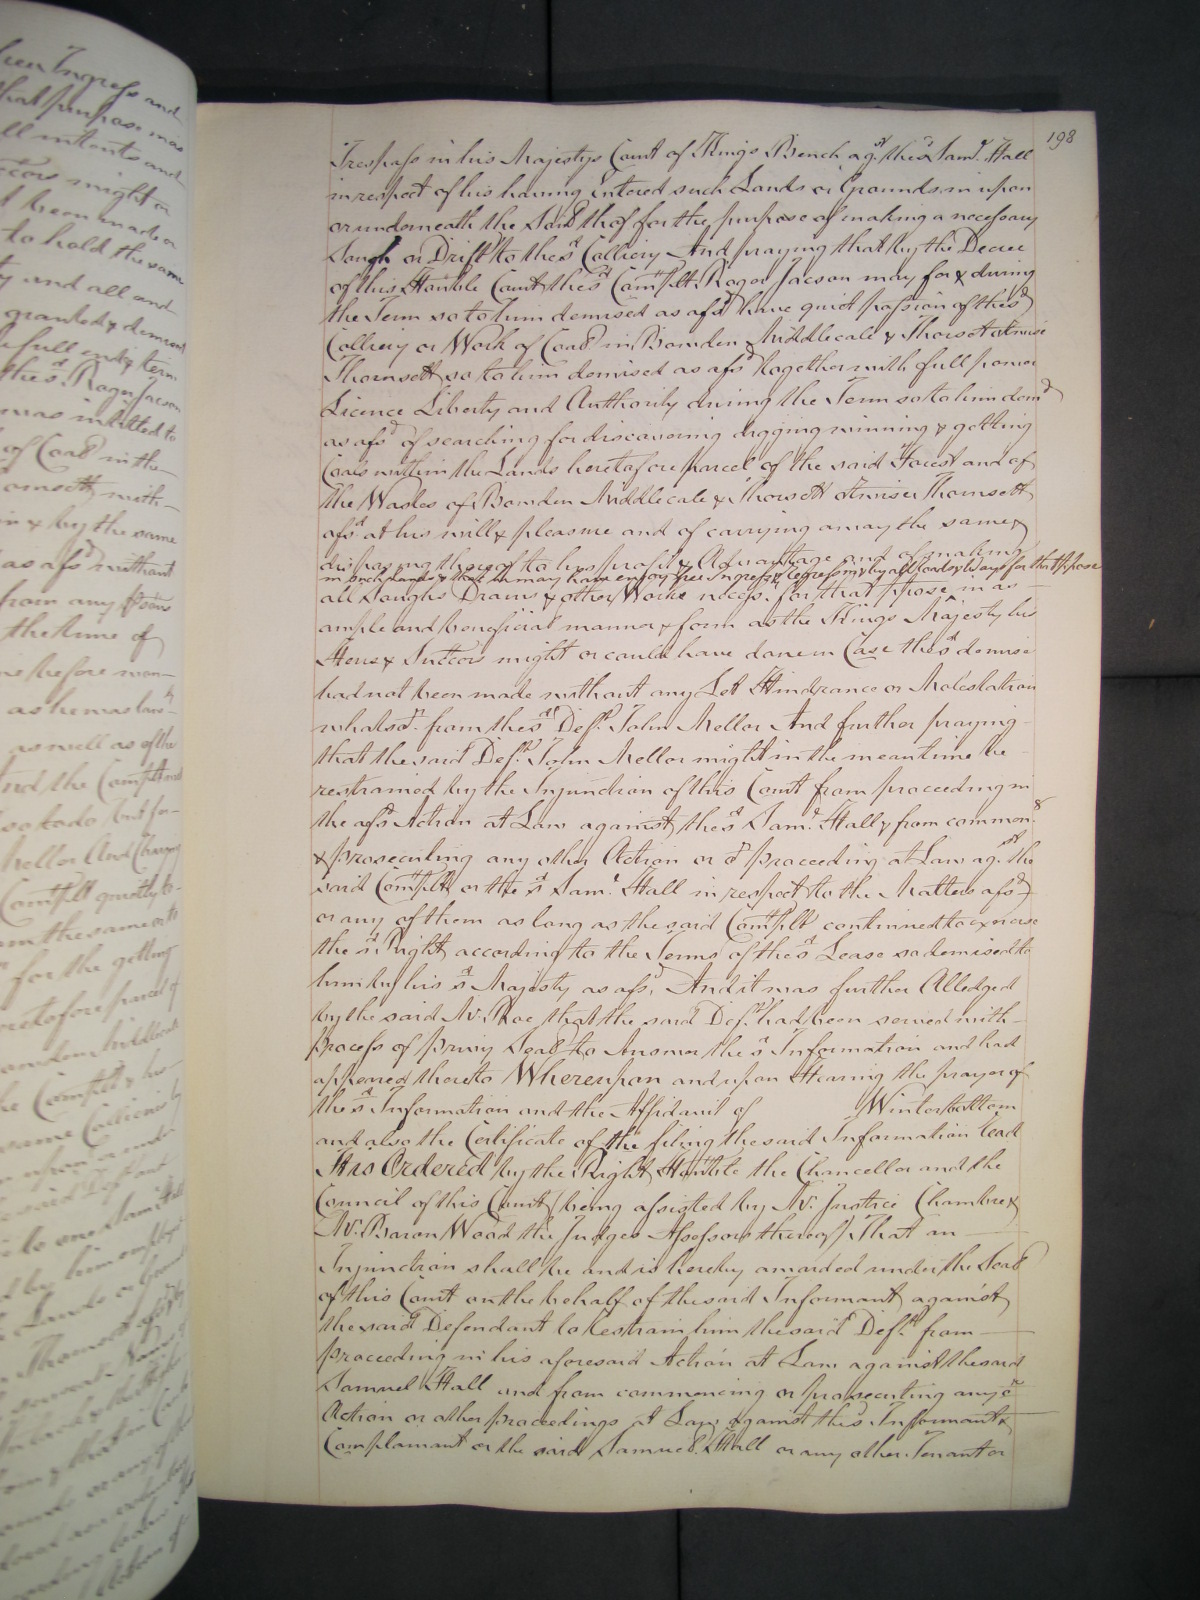 198
Trespass in his Majestys Court of Kings Bench agt. the sd. Saml. Hall
in respect of his having Entered such Lands or Grounds in upon
or underneath the Soil thof for the purpose of making a necessary
Sough or Drift to the sd Colliery And praying that by the Decree
of this Honble Court the sd Complt Roger Jacson may for & during
the Term so to him demised as afsd have quiet possion of the sd
Colliery or Work of Coal in Bowden Middlecale & Thorsett otherwise
Thornsett so to him demised as afsd together with full power
Licence Liberty and Authority during the Term so to him demd
as afsd of searching for discovering digging winning & getting
Coals within the Lands heretofore parcel of the said Forest and of
the Wastes of Bowden Middlecale & Thorsett otherwise Thornsett
afsd at his will & pleasure and of carrying away the same &
disposing thereof to his profit & Advantage and of making
in such Lands & that he may have enjoy free Ingress & Regress in & by all Roads & Ways for that Ppose
all Soughs Drains & other Works necessy. for that Ppose in as
ample and beneficial manner & form as the Kings Majesty his
Heirs & Successors might or could have done in Case the sd demise
had not been made without any Let Hindrance or Molestation
whatsor. from the sd Deft. John Mellor And further praying
that the said Deft. John Mellor might in the meantime be
restrained by the Injunction of this Court from proceeding in
the afsd Action at Law against the sd Saml. Hall & from commencg
& prosecuting any other Action or or proceeding at Law agt. the
said Complt or the sd Saml. Hall in respect to the Matters afsd
or any of them as long as the said Complt continued to exercise
the sd Right according to the Terms of the sd Lease so demised to
him by his sd Majesty as afsd. And it was further Alledged
by the said Mr. Roe that the said Deft. had been served with
Process of Privy Seal to Answer the sd Information and had
appeared thereto Whereupon and upon Hearing the prayer of
the sd Information and the Affidavit of Winterbottom
and also the Certificate of the filing the said Information read
It is Ordered by the Right Honble the Chancellor and the
Council of this Court (being assisted by Mr. Justice Chambre &
Mr. Baron Wood the Judges Assessors thereof) That an
Injunction shall be and is hereby awarded under the Seal
of this Court on the behalf of the said Informant against
the said Defendant to Restrain him the said Deft. from
proceeding in his aforesaid Action at Law against the said
Samuel Hall and from commencing or prosecuting any or
Action or other proceedings at Law against the sd Informant &
Complainant or the said Samuel Hall or any other Tenant or